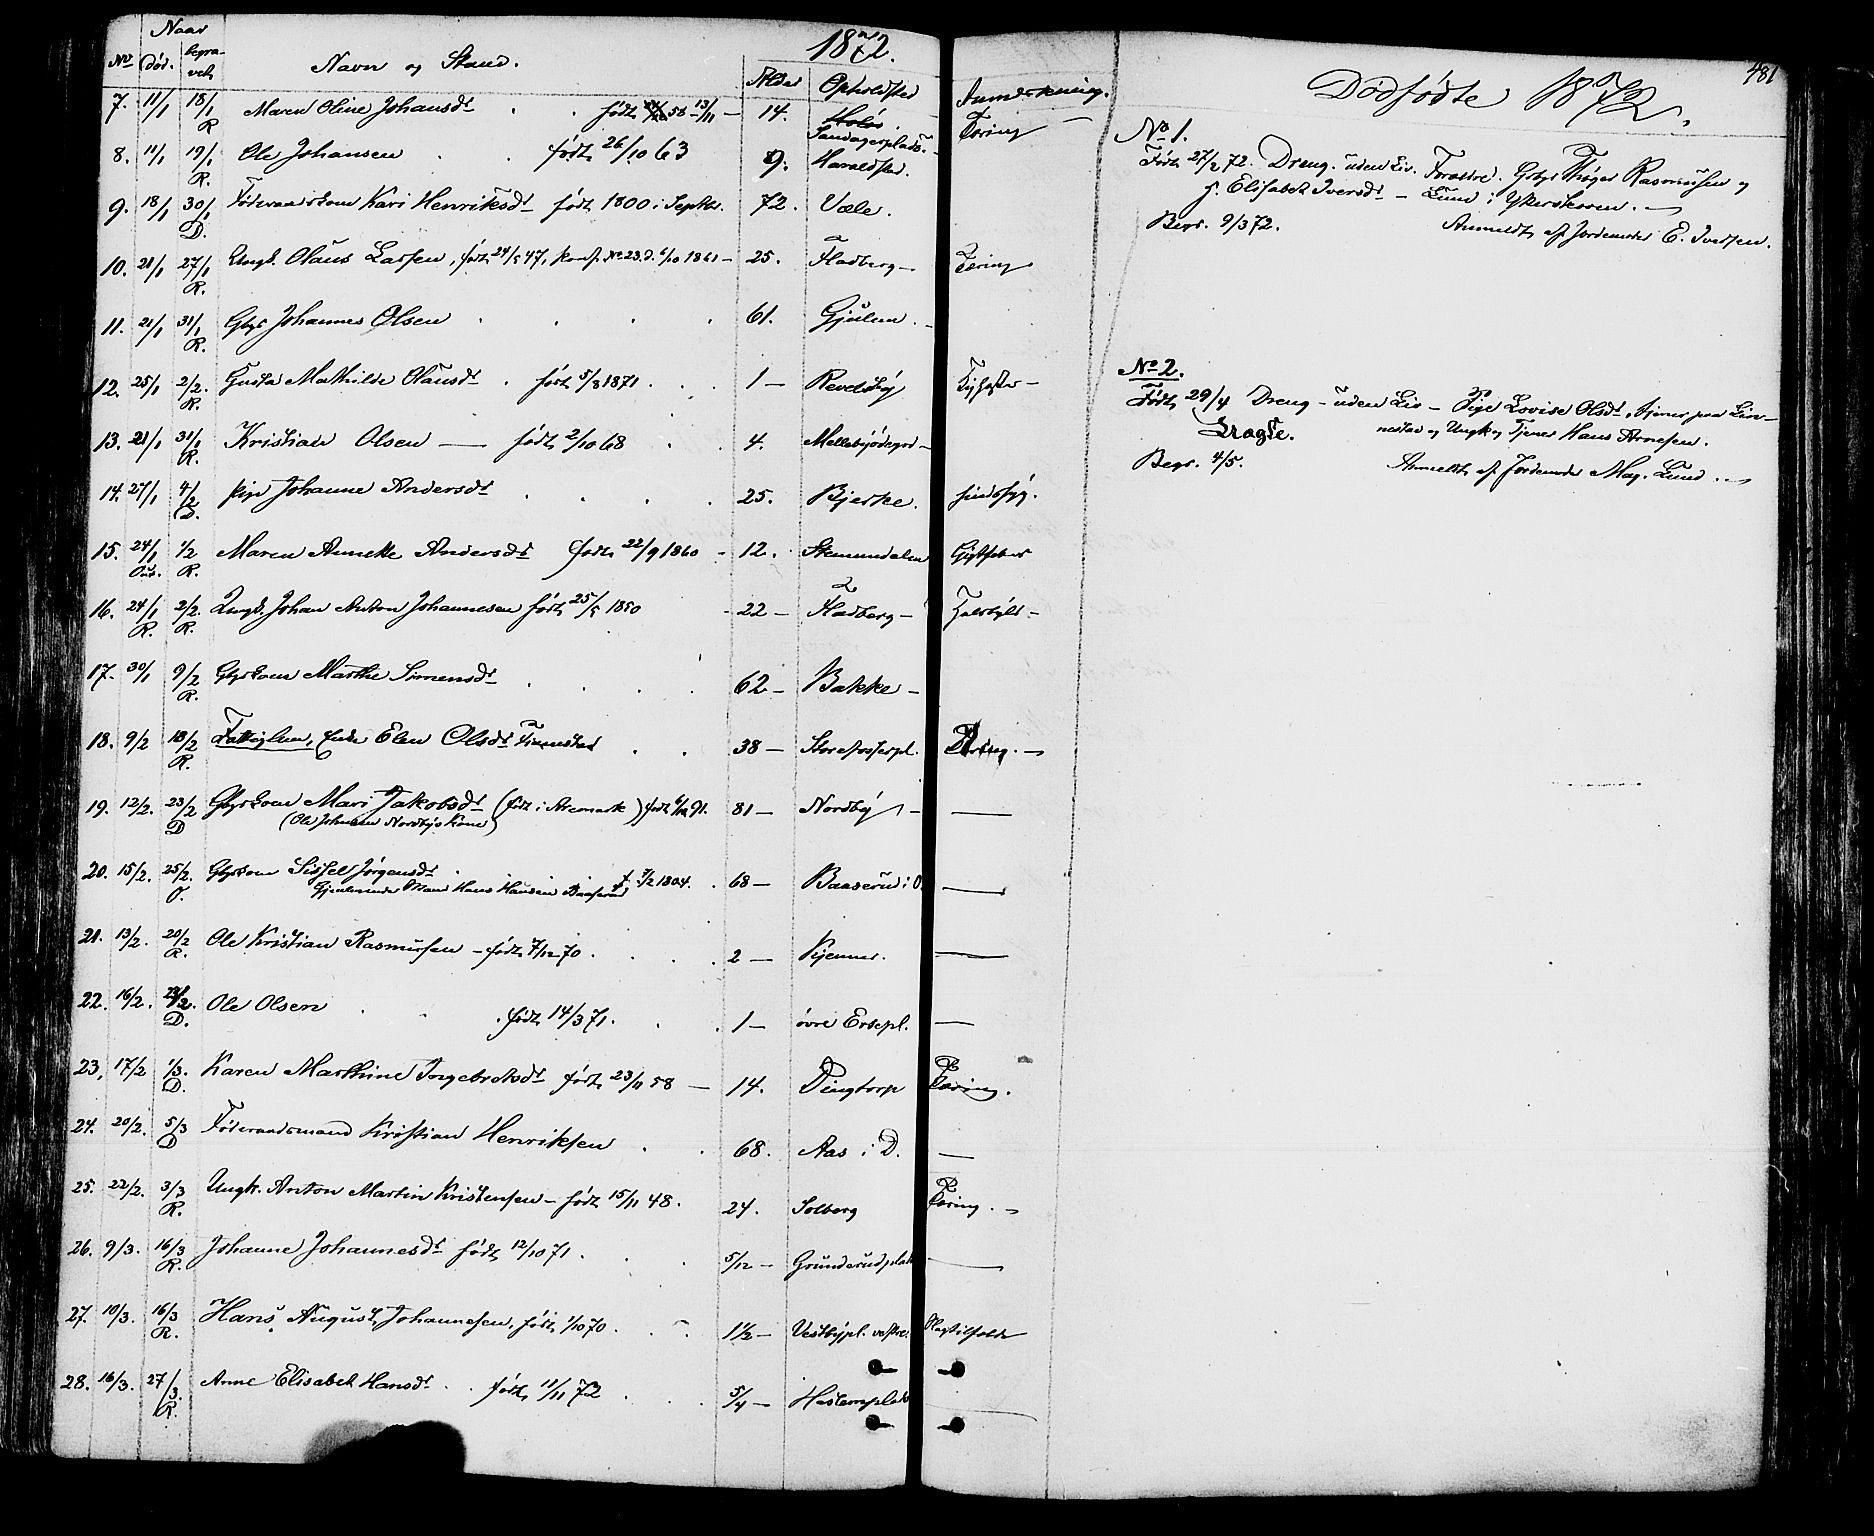 1872.
Naar
No død. begravet Navn og Stand. Alder Opholdsted Anmærkning.
7. 11/1 18/1 R Maren Oline Johansdr født 58 13/11 14. Sandagerplads. Tæring
8. 11/1 19/1 R. Ole Johansen født 26/10 63 9. Haraldstad.
9. 18/1 30/1 D. Føderaadskone Kari Henriksdr født 1800 i Septbr. 72. Væle.
10. 21/1 27/1 R. Ungk. Olaus Larsen, født 24/5 47, konf. No 23. d. 6/10 1861 25. Fladberg Tæring
11. 21/1 31/1 R. Gbgr Johannes Olsen 61. Gjulem.
12. 25/1 2/2. R. Gusta Mathilde Olausdr. født 5/3 1871. 1 — Revelsby
13. 21/1 31/1 R. Kristian Olsen — født 2/10 68 4. Mellebyødegrd
14. 27/1 4/2 D. pige Johanne Andersdr 25. Bjerke. sindssyg.
15. 24/1 1/2 R. Maren Annette Andersdr født 22/9 1860 12. Stemmdalen Gigtfeber
16. 24/1 R. 2/2. R. Ungk. Johan Anton Johannesen født 25/5 1850 22 — Fladberg — Halsbyld —
17. 30/1 9/2 R. Gbgrkone Marthe Simensdr 62 — Bakke —
18. 9/2 18/2 R. Fattiglem, Enke Elen Olsdr Finnestad 38 — Store Tosterpl. Tæring. —
19. 12/2. 23/2 D Gbgrkone Mari Jakobsdr (født i Aremark) født 91. 81 — Nordby —
(Ole Johnsen Nordbys Kone)
20. 15/2. 25/2. O. Gbgrkone Sissel Jørgensdr f. 7/2 1804. 68 — Baaserud i O. —
Gjenlevende Mand Hans Hansen Baaserud
21. 13/2. 20/2 R. Ole Kristian Rasmussen — født 7/12 70. 2 — Kjenner. —
22. 16/2. D. Ole Olsen født 14/3 71. 1 — øvre Ertepl. —
23, 17/2 1/3. D. Karen Marthine Ingebretsdr født 23/11 58 — 14. Dingtorp Tæring.
24. 20/2. 5/3 D Føderaadsmand Kristian Henriksen 68. Aas i D. —
25. 22/2. 3/3 R. Ungk. Anton Martin Kristensen — født 15/11 48. 24. Solberg Tæring. —
26. 9/3. 16/3 R. Johanne Johannesdr født 12/10 71. 5/12 — Grunderudplads —
27. 10/3. 16/3 R. Hans August Johannesen, født 1/10 70. 1½ — Vestbypl. vestre. Slagtilfælde
28. 16/3. 27/3. R. Anne Elisabet Hansdr født 11/11 72 5/4 — Hastemplads
481
Dødfødte 1872.
No 1.
Født 27/2 72. Dreng. uden Liv. Forældre. Gbgr Thøger Rasmussen og
H. Elisabet Iversdr — Lund i Ykersteren. —
Begr. 9/3 72. Anmeldt af Jordemoder E. Iversen.
No 2.
Født 29/4 Dreng — uden Liv — Pige Lovise Olsdr, tjener paa Lin-
nestad og Ungk og Tjener Hans Arnesen.
Uægte.
Begr. 4/5. Anmeldt af Jordemoder Mag. Lund. —